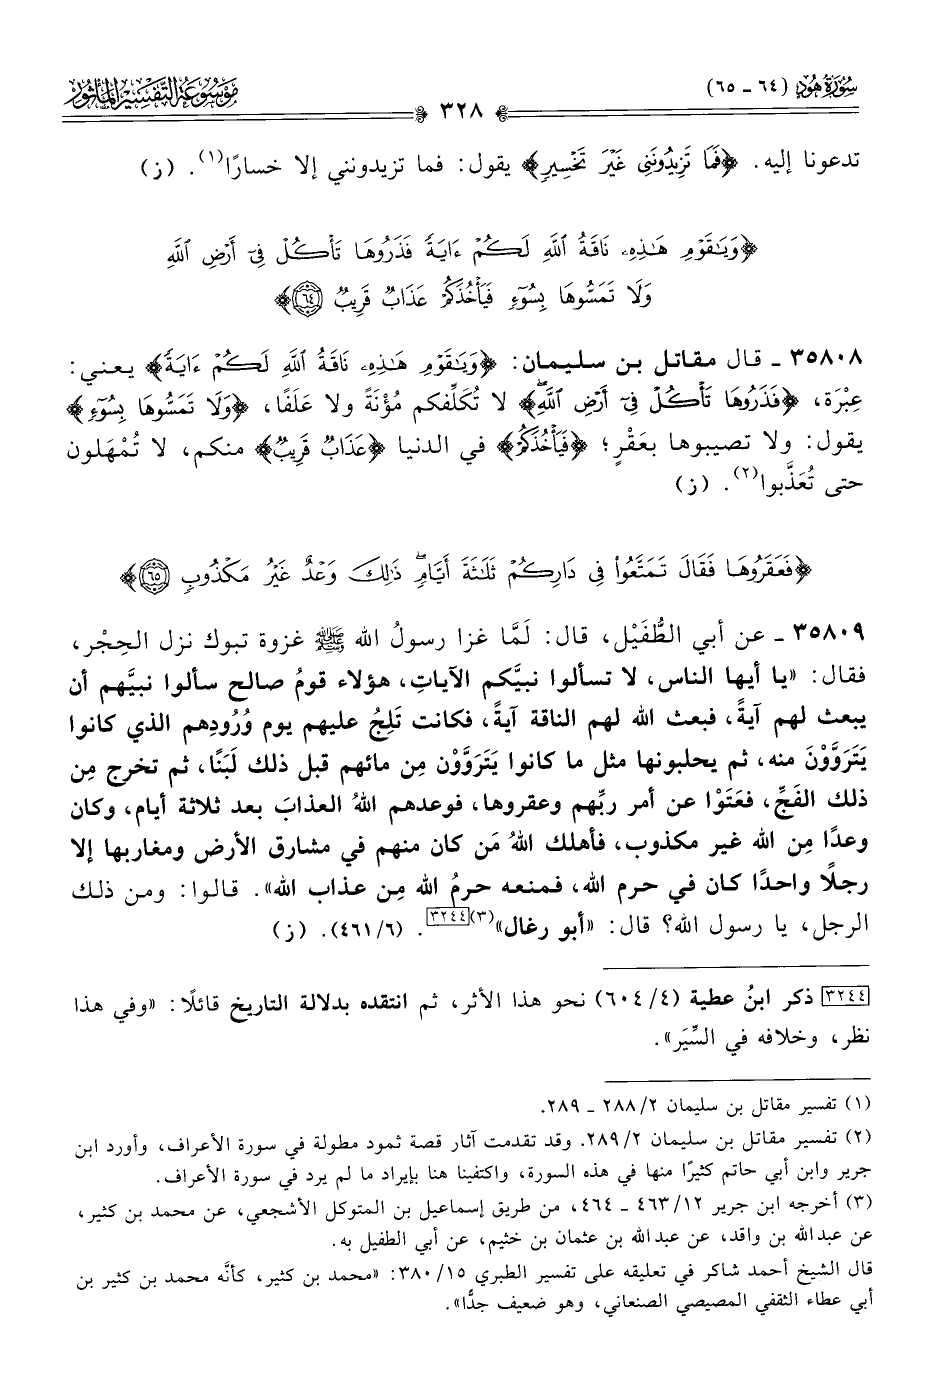 سُورَةُ هُودٍ (٦٤ - ٦٥)
٣٢٨
مَوْسُوعَة التَّفْسِير المَأْثُور
تدعونا إليه. ﴿فَمَا تَزِيدُونَنِى غَيْرَ تَخْسِيرٍ﴾ يقول: فما تزيدونني إلا خسارًا(١). (ز)
﴿وَيَٰقَوْمِ هَٰذِهِۦ نَاقَةُ ٱللَّهِ لَكُمْ ءَايَةً فَذَرُوهَا تَأْكُلْ فِىٓ أَرْضِ ٱللَّهِ
وَلَا تَمَسُّوهَا بِسُوٓءٍ فَيَأْخُذَكُمْ عَذَابٌ قَرِيبٌ ٦٤﴾
٣٥٨٠٨ ـ قال مقاتل بن سليمان: ﴿وَيَٰقَوْمِ هَٰذِهِۦ نَاقَةُ ٱللَّهِ لَكُمْ ءَايَةً﴾ يعني:
عِبْرَة، ﴿فَذَرُوهَا تَأْكُلْ فِىٓ أَرْضِ ٱللَّهِۖ﴾ لا تُكَلِّفكم مُؤْنَةً ولا عَلَفًا، ﴿وَلَا تَمَسُّوهَا بِسُوٓءٍ﴾
يقول: ولا تصيبوها بعَقْرٍ؛ ﴿فَيَأْخُذَكُمْ﴾ في الدنيا ﴿عَذَابٌ قَرِيبٌ﴾ منكم، لا تُمْهَلون
حتى تُعَذَّبوا(٢). (ز)
﴿فَعَقَرُوهَا فَقَالَ تَمَتَّعُوا۟ فِى دَارِكُمْ ثَلَٰثَةَ أَيَّامٍۖ ذَٰلِكَ وَعْدٌ غَيْرُ مَكْذُوبٍ ٦٥﴾
٣٥٨٠٩ ـ عن أبي الطُّفَيْل، قال: لَمَّا غزا رسولُ الله ﷺ غزوة تبوك نزل الحِجْر،
فقال: «يا أيها الناس، لا تسألوا نبيَّكم الآياتِ، هؤلاء قومُ صالح سألوا نبيَّهم أن
يبعث لهم آيةً، فبعث الله لهم الناقة آيةً، فكانت تَلِجُ عليهم يوم وُرُودِهم الذي كانوا
يَتَرَوَّوْنَ منه، ثم يحلبونها مثل ما كانوا يَتَرَوَّوْن مِن مائهم قبل ذلك لَبَنًا، ثم تخرج مِن
ذلك الفَجِّ، فعَتَوْا عن أمر ربِّهم وعقروها، فوعدهم اللهُ العذابَ بعد ثلاثة أيام، وكان
وعدًا مِن الله غير مكذوب، فأهلك اللهُ مَن كان منهم في مشارق الأرض ومغاربها إلا
رجلًا واحدًا كان في حرم الله، فمنعه حرمُ الله مِن عذاب الله». قالوا: ومن ذلك
الرجل، يا رسول الله؟ قال: «أبو رغال»(٣)[٣٢٤٤]. (٤٦١/٦). (ز)
[٣٢٤٤] ذكر ابنُ عطية (٦٠٤/٤) نحو هذا الأثر، ثم انتقده بدلالة التاريخ قائلًا: «وفي هذا
نظر، وخلافه في السِّيَر».
(١) تفسير مقاتل بن سليمان ٢٨٨/٢ ـ ٢٨٩.
(٢) تفسير مقاتل بن سليمان ٢٨٩/٢. وقد تقدمت آثار قصة ثمود مطولة في سورة الأعراف، وأورد ابن
جرير وابن أبي حاتم كثيرًا منها في هذه السورة، واكتفينا هنا بإيراد ما لم يرد في سورة الأعراف.
(٣) أخرجه ابن جرير ٤٦٣/١٢ ـ ٤٦٤، من طريق إسماعيل بن المتوكل الأشجعي، عن محمد بن كثير،
عن عبدالله بن واقد، عن عبدالله بن عثمان بن خثيم، عن أبي الطفيل به.
قال الشيخ أحمد شاكر في تعليقه على تفسير الطبري ٣٨٠/١٥: «محمد بن كثير، كأنَّه محمد بن كثير بن
أبي عطاء الثقفي المصيصي الصنعاني، وهو ضعيف جدًّا».